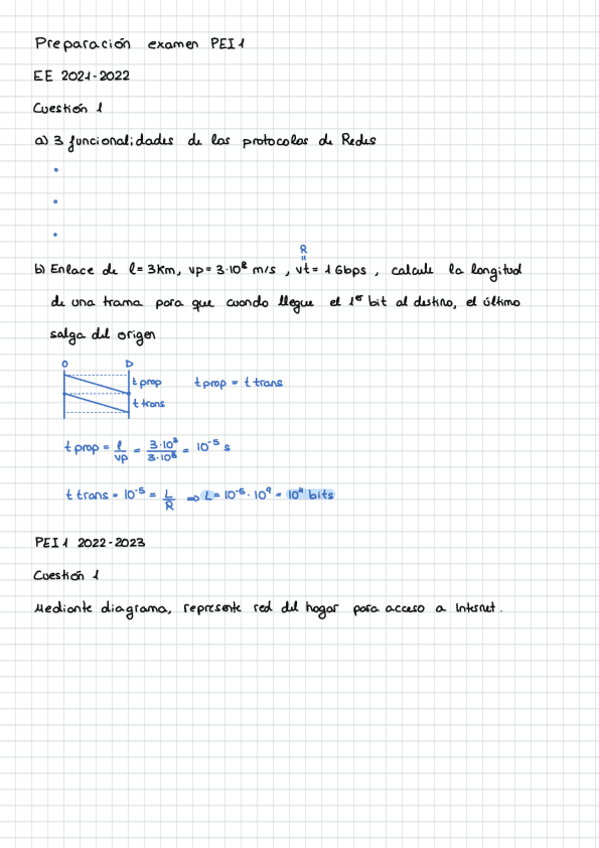 Preparación examen PEI 1
EE 2021-2022
Cuestión 1
a) 3 funcionalidades de los protocolos de Redes
•
•
•
R
=
b) Enlace de l = 3Km, vp = 3·10⁸ m/s, vt = 1 Gbps, calcule la longitud
de una trama para que cuando llegue el 1er bit al destino, el último
salga del origen
O D
t prop t prop = t trans
t trans
t prop = l/vp = 3·10³/3·10⁸ = 10⁻⁵ s
t trans = 10⁻⁵ = L/R ⇒ L = 10⁻⁵ · 10⁹ = 10⁴ bits
PEI 1 2022-2023
Cuestión 1
Mediante diagrama, represente red del hogar para acceso a Internet.